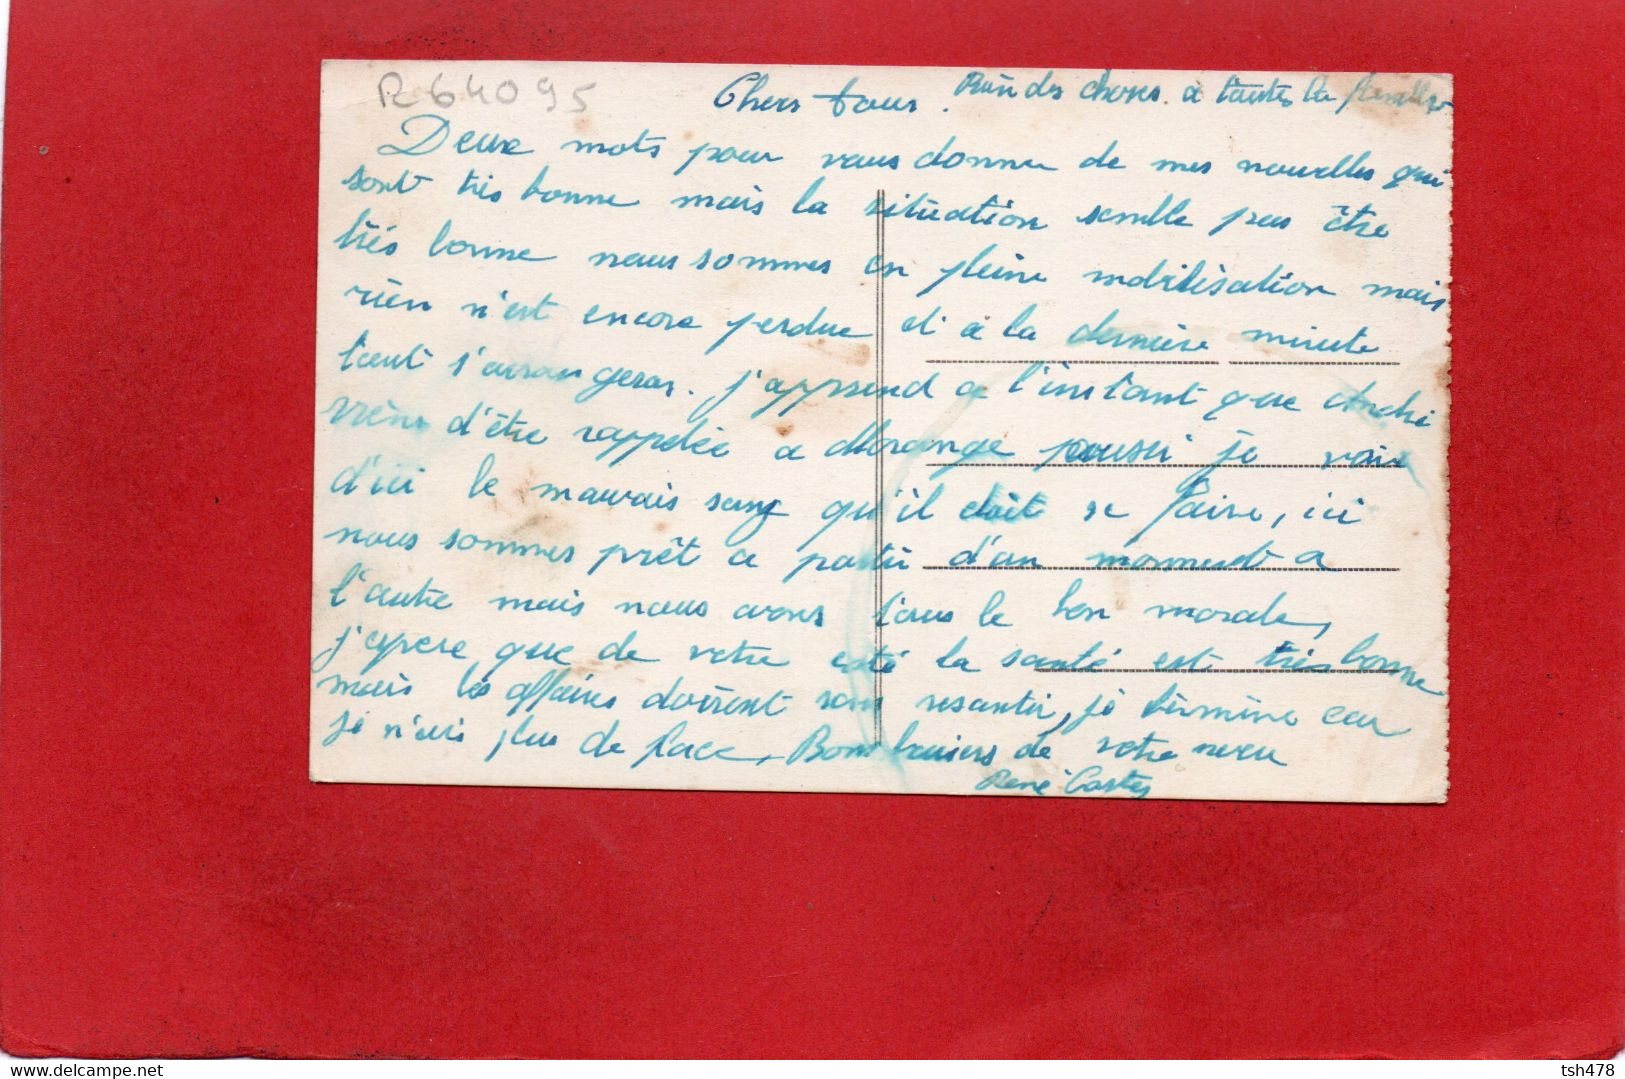 R64095
Chers tous. Bien des choses. a toutes la famille
Deux mots pour vous donner de mes nouvelles qui
sont très bonne mais la situation semble pas être
très bonne nous sommes en pleine mobilisation mais
rien n'est encore perdue et a la dernière minute
tout s'arrangeras. j'apprend a l'instant que André
viens d'être rappelée a Morange je vois
d'ici le mauvais sang qu'il doit se faire, ici
nous sommes prêt a partir d'un moment a
l'autre mais nous avons tous le bon morale,
j'espere que de votre coté la santé est très bonne
mais les affaires doivent s'en resentir, je termine car
je n'ai plus de place, Bons baisers de votre neveu
René Castes
tsh478